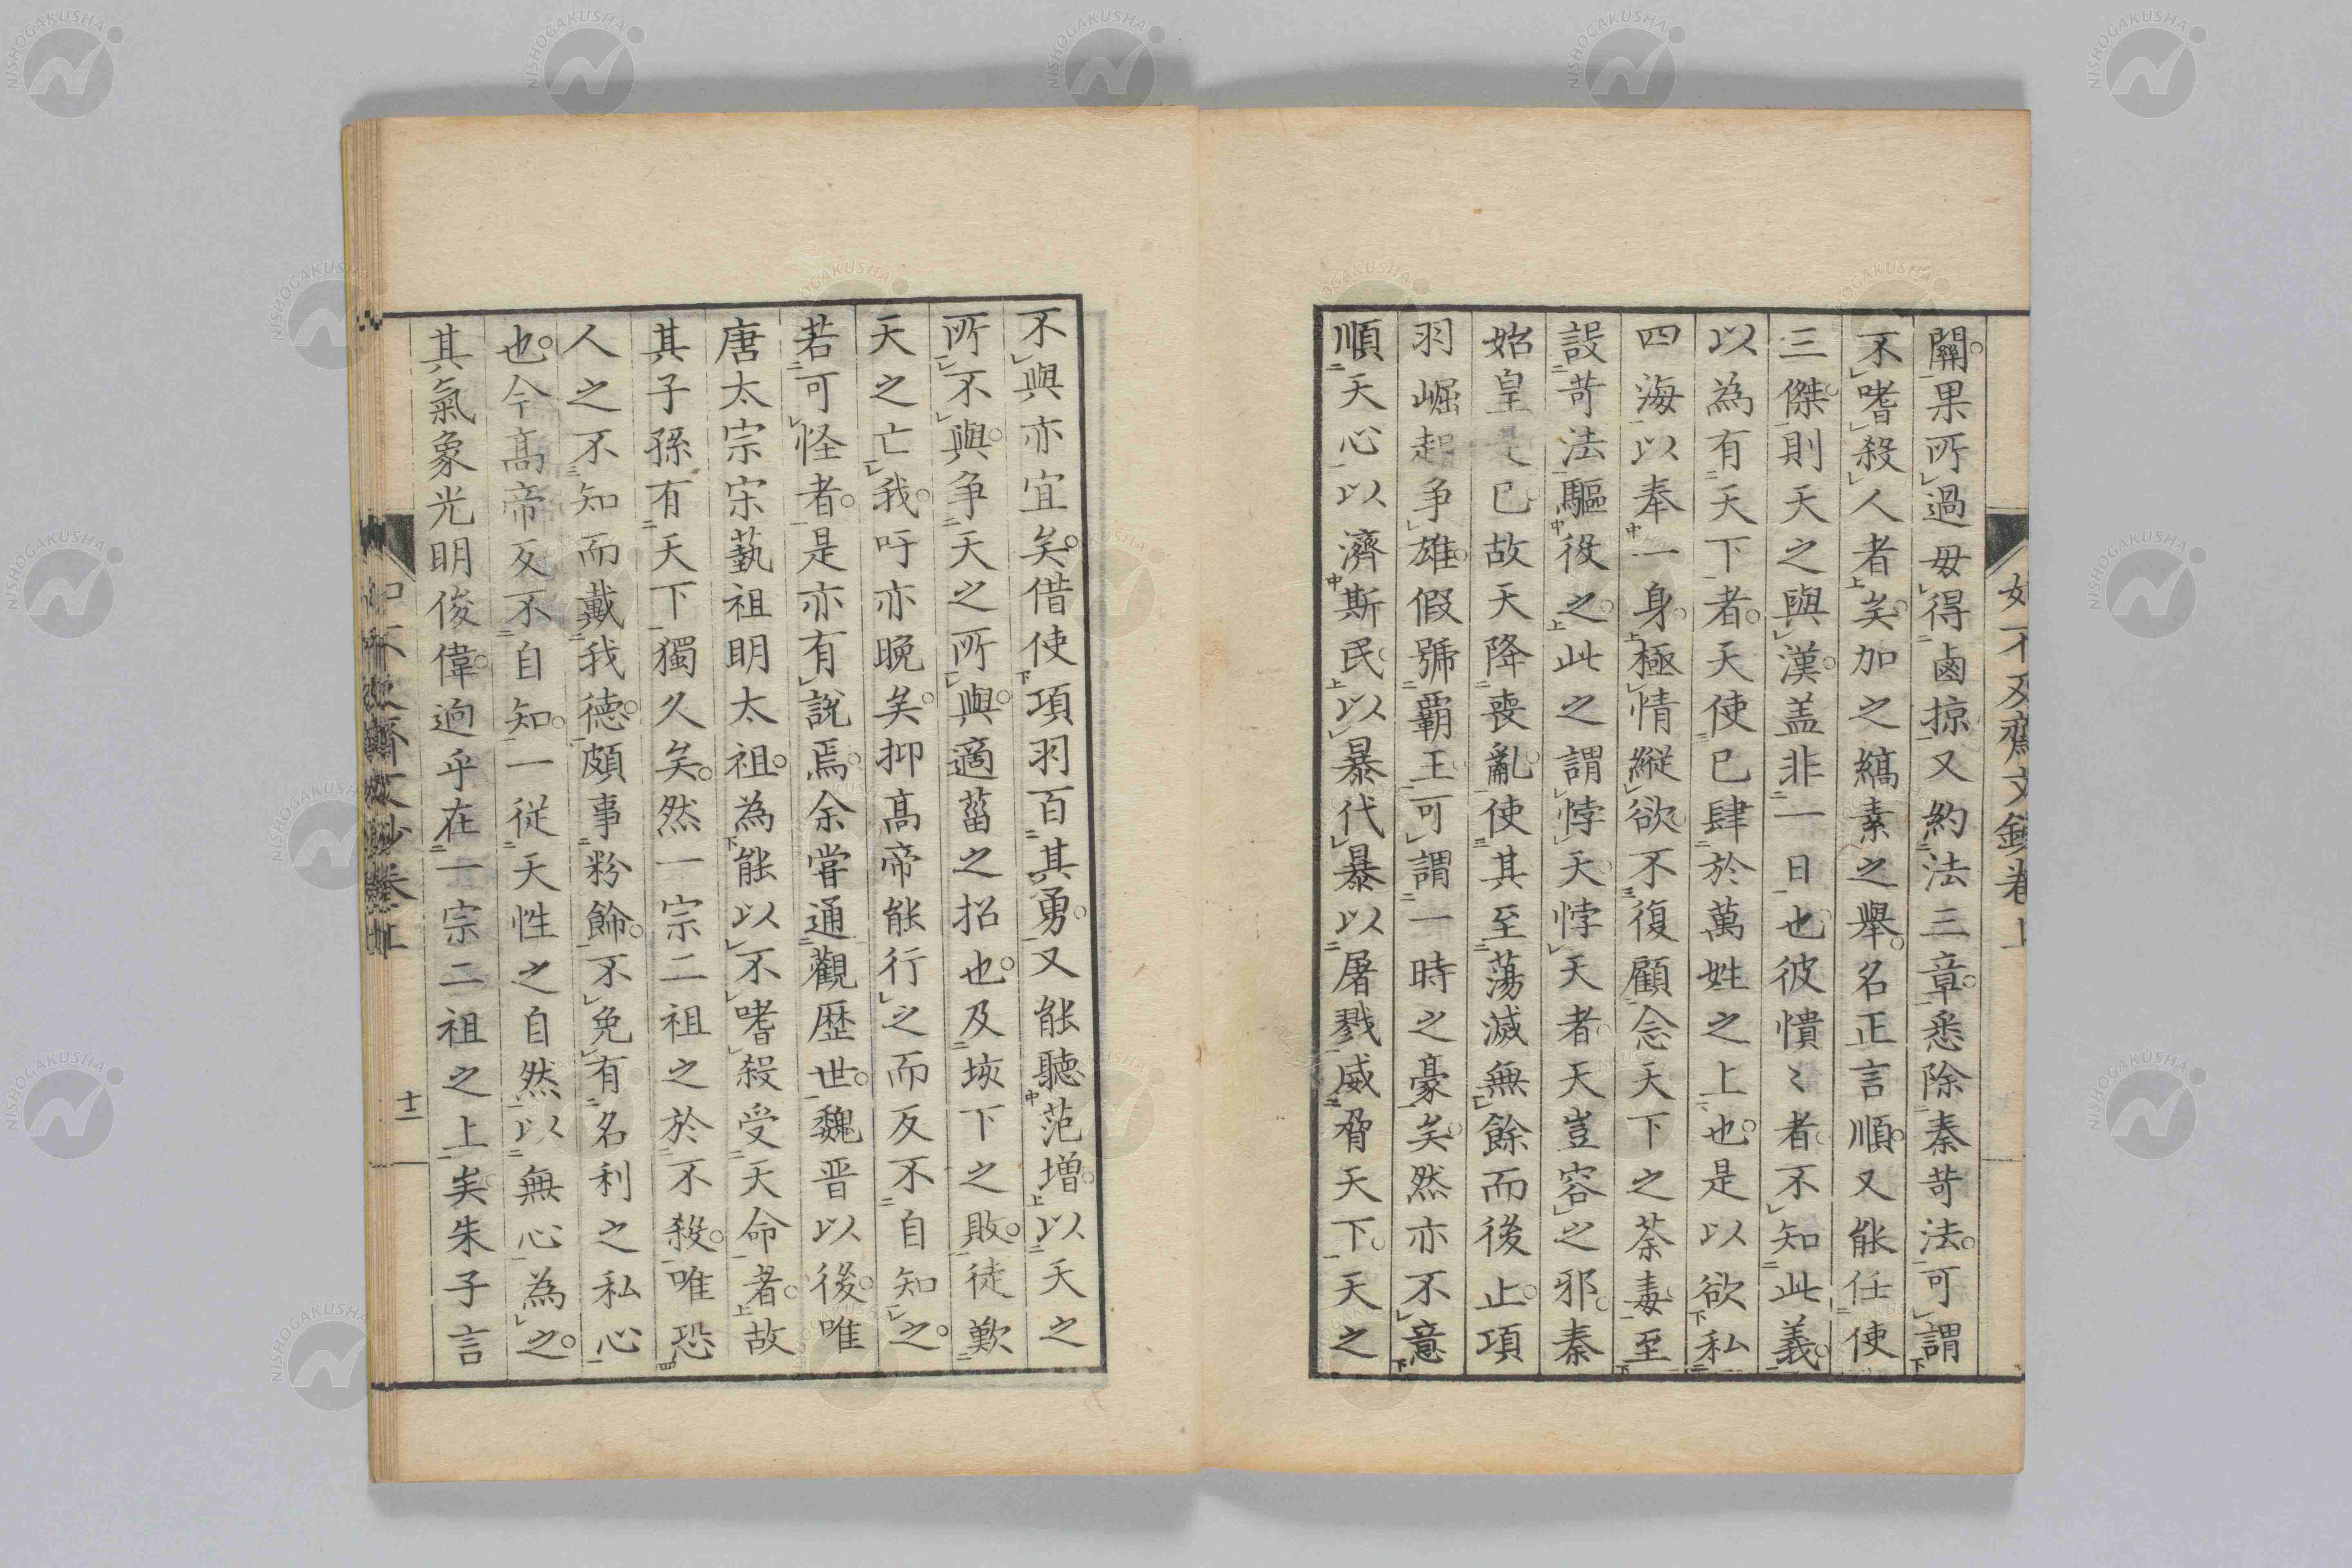 關果所過毋得鹵掠又約法三章悉除秦苛法可謂
不嗜殺人者矣加之縞素之舉名正言順又能任使
三傑則天之與漢盖非一日也彼憒〻者不知此義
以為有天下者天使已肆於萬姓之上也是以欲私
四海以奉一身極情縦欲不復顧念天下之荼毒至
設苛法驅役之此之謂悖天悖天者天豈容之邪秦
始皇是已故天降喪亂使其至蕩滅無餘而後止項
羽崛起争雄假號覇王可謂一時之豪矣然亦不意
順天心以濟斯民以暴代暴以屠戮威脅天下天之
不與亦宜矣借使項羽百其勇又能聽范增以天之
所不與争天之所與適菑之招也及垓下之敗徒歎
天之亡我吁亦晩矣抑髙帝能行之而反不自知之
若可怪者是亦有說焉余嘗通觀歴世魏晋以後唯
唐太宗宋藝祖明太祖為能以不嗜殺受天命者故
其子孫有天下獨久矣然一宗二祖之於不殺唯恐
人之不知而戴我德頗事粉餙不免有名利之私心
也今髙帝反不自知一從天性之自然以無心為之
其氣象光明俊偉逈乎在一宗二祖之上矣朱子言
如不及齋文鈔卷上
十二
NISHOGAKUSHA